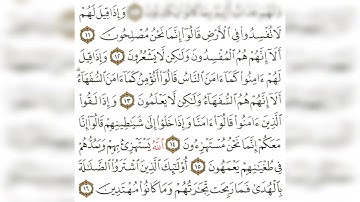 وَإِذَا قِيلَ لَهُمْ
لَا تُفْسِدُوا۟ فِى ٱلْأَرْضِ قَالُوٓا۟ إِنَّمَا نَحْنُ مُصْلِحُونَ ١١
أَلَآ إِنَّهُمْ هُمُ ٱلْمُفْسِدُونَ وَلَٰكِن لَّا يَشْعُرُونَ ١٢ وَإِذَا قِيلَ
لَهُمْ ءَامِنُوا۟ كَمَآ ءَامَنَ ٱلنَّاسُ قَالُوٓا۟ أَنُؤْمِنُ كَمَآ ءَامَنَ ٱلسُّفَهَآءُ
أَلَآ إِنَّهُمْ هُمُ ٱلسُّفَهَآءُ وَلَٰكِن لَّا يَعْلَمُونَ ١٣ وَإِذَا لَقُوا۟
ٱلَّذِينَ ءَامَنُوا۟ قَالُوٓا۟ ءَامَنَّا وَإِذَا خَلَوْا۟ إِلَىٰ شَيَٰطِينِهِمْ قَالُوٓا۟ إِنَّا
مَعَكُمْ إِنَّمَا نَحْنُ مُسْتَهْزِءُونَ ١٤ ٱللَّهُ يَسْتَهْزِئُ بِهِمْ وَيَمُدُّهُمْ
فِى طُغْيَٰنِهِمْ يَعْمَهُونَ ١٥ أُو۟لَٰٓئِكَ ٱلَّذِينَ ٱشْتَرَوُا۟ ٱلضَّلَٰلَةَ
بِٱلْهُدَىٰ فَمَا رَبِحَت تِّجَٰرَتُهُمْ وَمَا كَانُوا۟ مُهْتَدِينَ ١٦